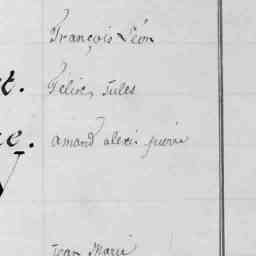 François Léon
t. Felix, Jules
e. amand alexis pierre
jean Marie